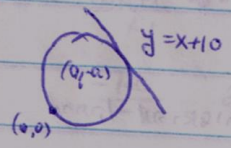 y = x+10
(0,0)